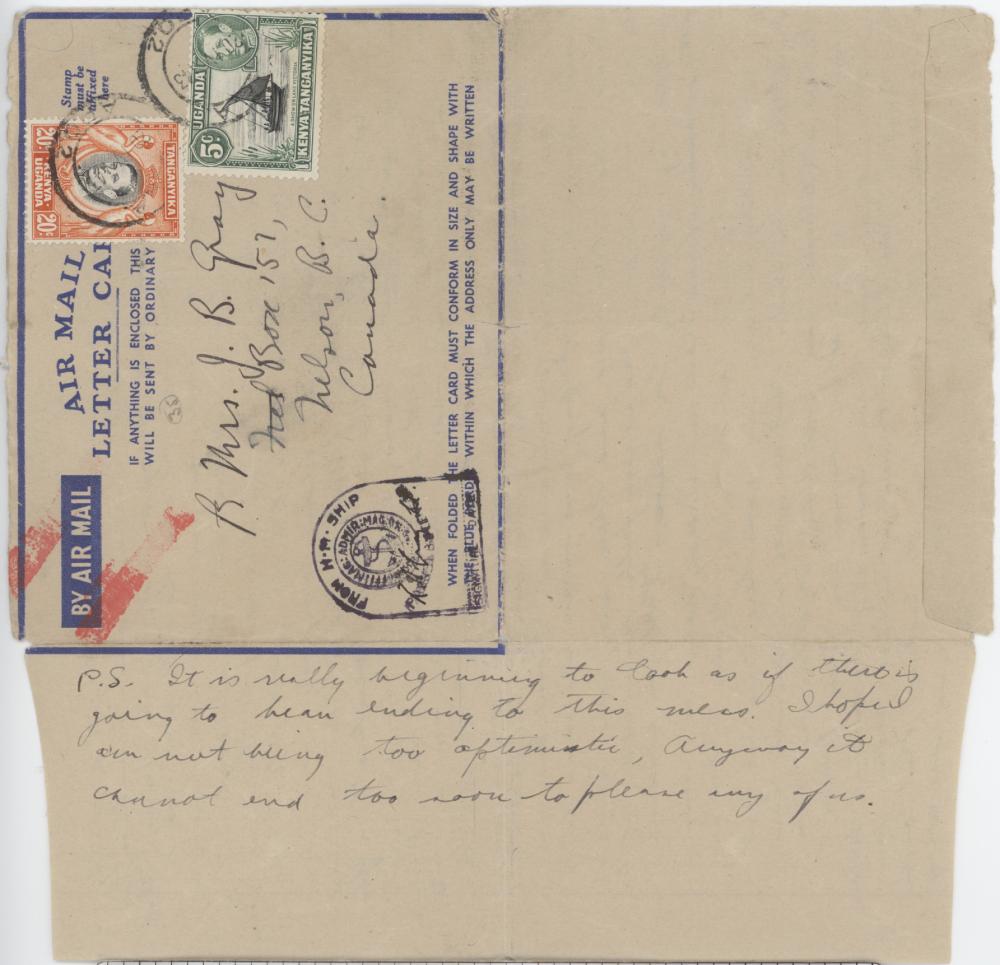 Stamp
must be
affixed
here
UGANDA
KENYA TANGANYIKA
5c
TANGANYIKA
KENYA
UGANDA
20c
20c
AIR MAIL
LETTER CAR
IF ANYTHING IS ENCLOSED THIS
WILL BE SENT BY ORDINARY
BY AIR MAIL
Mrs. J. B. Gray
Box 157,
Nelson, B. C.
Canada.
FROM H.M. SHIP
WHEN FOLDED THE LETTER CARD MUST CONFORM IN SIZE AND SHAPE WITH
THE BLUE WITHIN WHICH THE ADDRESS ONLY MAY BE WRITTEN
P.S. It is really beginning to look as if there is
going to be an ending to this mess. I hope I
am not being too optimistic, Anyway it
cannot end too soon to please any of us.